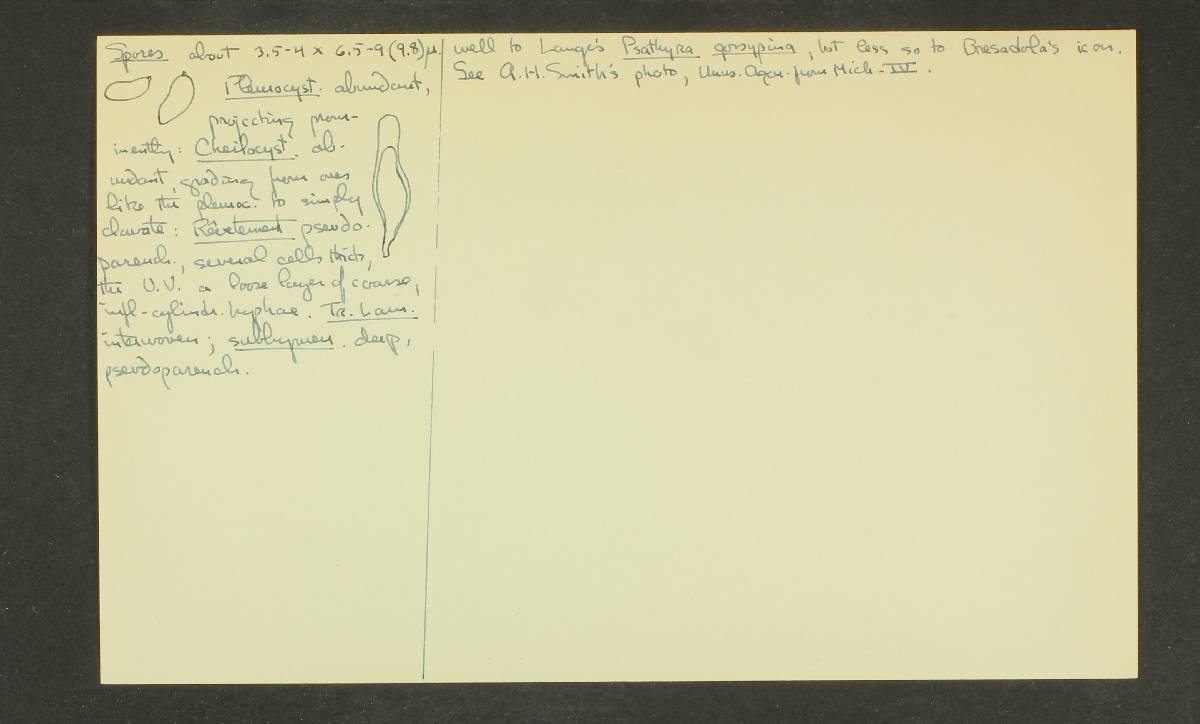 Spores about 3.5-4 x 6.5-9 (9.8)µ.
Pleurocyst. abundant,
projecting prom-
inently: Cheilocyst. ab-
undant, grading from ones
like the pleuroc. to simply
clavate: Revetement pseudo-
parench., several cells thick,
the U.V. a loose layer of coarse,
infl-cylindr. hyphae. Tr. Lam.
interwoven; subhymen. deep,
pseudoparench.
well to Lange's Psathyra gossypina, but less so to Bresadola's icon.
See A.H. Smith's photo, Unus. Agar. from Mich - IV.